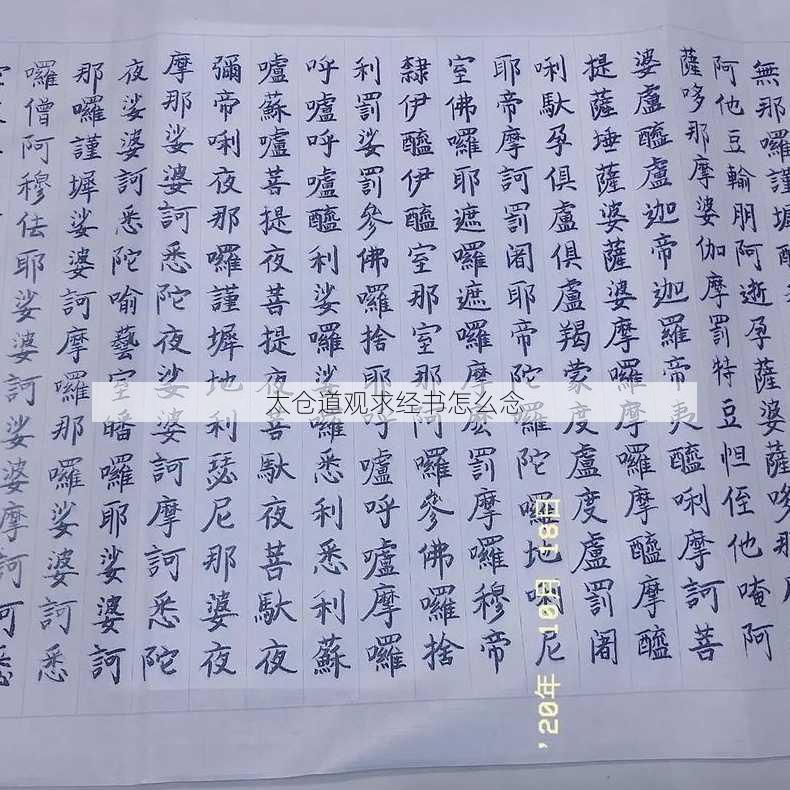 無那囉謹墀醯
阿他豆輸朋阿逝孕薩婆薩哆那
薩哆那摩婆伽摩罰特豆怛侄他唵阿
婆盧醯盧迦帝迦羅帝夷醯唎摩訶菩
提薩埵薩婆薩婆摩囉摩囉摩醯摩醯
唎馱孕俱盧俱盧羯蒙度盧度盧罰闍
耶帝摩訶罰闍耶帝陀囉陀囉地唎尼
室佛囉耶遮囉遮囉摩麼罰摩囉穆帝
隸伊醯伊醯室那室那阿囉參佛囉捨
利罰娑罰參佛囉捨耶呼嚧呼嚧摩囉
呼嚧呼嚧醯利娑囉娑囉悉利悉利蘇
嚧蘇嚧菩提夜菩提夜菩馱夜菩馱夜
彌帝唎夜那囉謹墀地利瑟尼那婆夜
摩那娑婆訶悉陀夜娑婆訶摩訶悉陀
夜娑婆訶悉陀喻藝室皤囉耶娑婆訶
那囉謹墀娑婆訶摩囉那囉娑婆訶悉
囉僧阿穆佉耶娑婆訶娑婆摩訶
太仓道观求经书怎么念
'20年 10月 18日